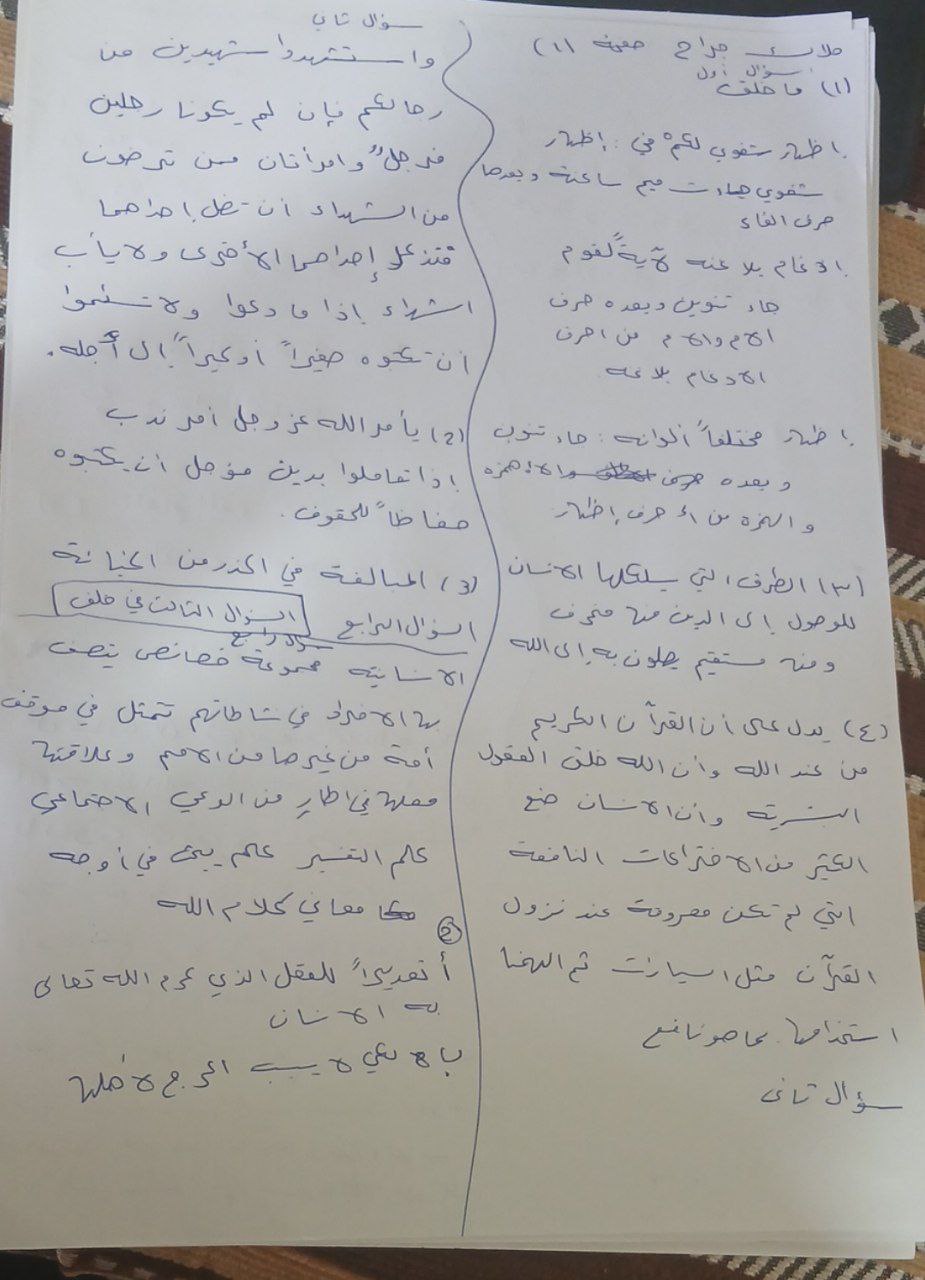 ملاك جراح صفحة (١)
سؤال أول
(١) ما خلق
إظهار شفوي لكم في : إظهار
شفوي جاءت ميم ساكنة وبعدها
حرف الفاء
ادغام بلا غنه لآيةً لقوم
جاء تنوين وبعده حرف
الام والام من احرف
الادغام بلا غنه
اظهار مختلفاً ألوانه : جاء تنوين
وبعده حرف الأهمزه
والهمزة من احرف إظهار
(٣) الطرق التي يسلكها الانسان
للوصول إلى الدين منها منحرف
ومنه مستقيم يصلون به إلى الله
(٤) يدل على أن القرآن الكريم
من عند الله وأن الله خلق العقول
البشرية وأن الانسان صنع
الكثير من الاختراعات النافعة
التي لم تكن معروفة عند نزول
القرآن مثل السيارات ثم الهمنا
استخدامها بما هو نافع
سؤال ثاني
سؤال ثاني
واستشهدوا شهيدين من
رجالكم فإن لم يكونا رجلين
فرجلٌ وامرأتان ممن ترضون
من الشهداء أن تضل إحداهما
فتذكر إحداهما الأخرى ولا يأب
الشهداء إذا ما دعوا ولا تسئموا
أن تكتبوه صغيراً أو كبيراً إلى أجله.
(2) يأمر الله عز وجل أمر ندب
إذا تعاملوا بدين مؤجل أن يكتبوه
حفاظاً للحقوق.
(3) المبالغة في الحذر من الخيانة
السؤال الرابع السؤال الثالث في خلف
سؤال رابع
الانسانية مجموعة خصائص يتصف
بها الافراد في نشاطاتهم تتمثل في موقف
أمة من غيرها من الامم وعلاقتها
معها في اطار من الوعي الاجتماعي
علم التفسير علم يبحث في أوجه
معاني كلام الله
②
أ تقديراً للعقل الذي كرم الله تعالى
به الانسان
ب لكي لا يسبب الحرج لأهلها